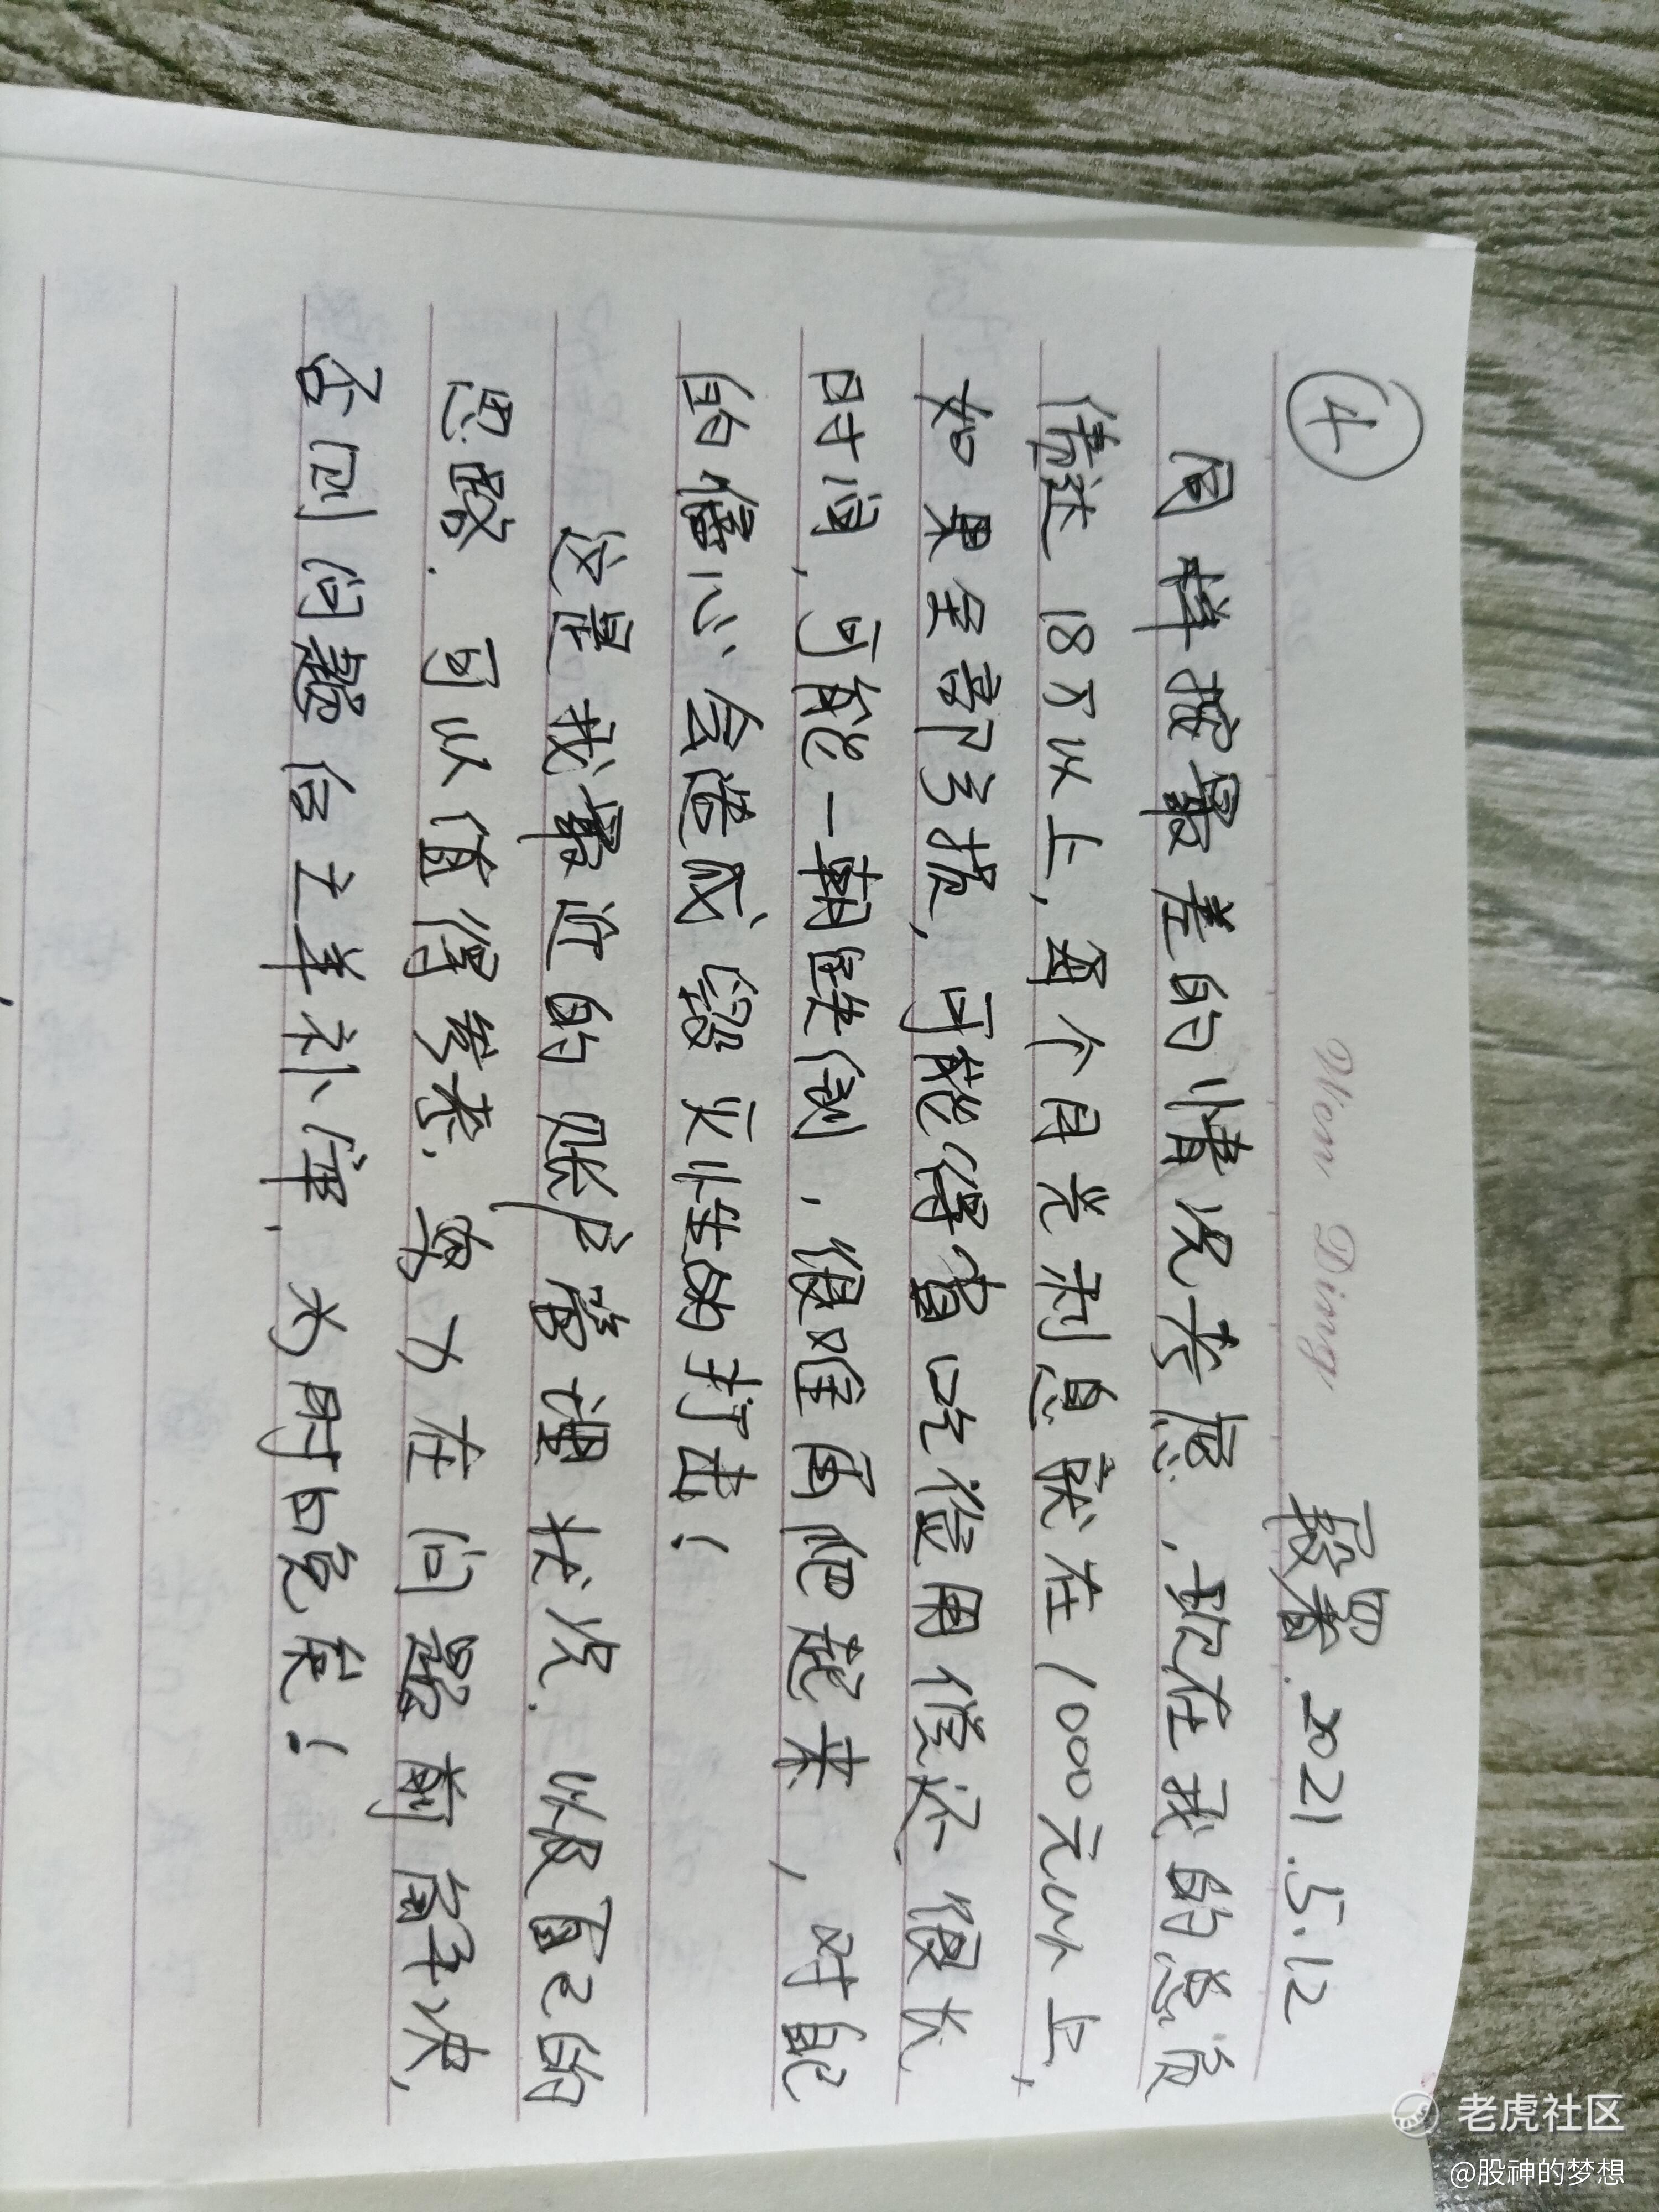 ④
Mon Ding
聂磊.2021.5.12
同样按最差的情况考虑,现在我的总负
债达18万以上,每个月光利息就在1000元以上,
如果全部亏损,可能得省吃俭用偿还很长
时间,可能一朝跌倒,很难再爬起来,对自己
的信心会造成毁灭性的打击!
这是我最近的账户管理状况.以及自己的
思路.可以值得参考.努力在问题前解决,
否则问题后亡羊补牢,为时已晚矣!
老虎社区
@股神的梦想